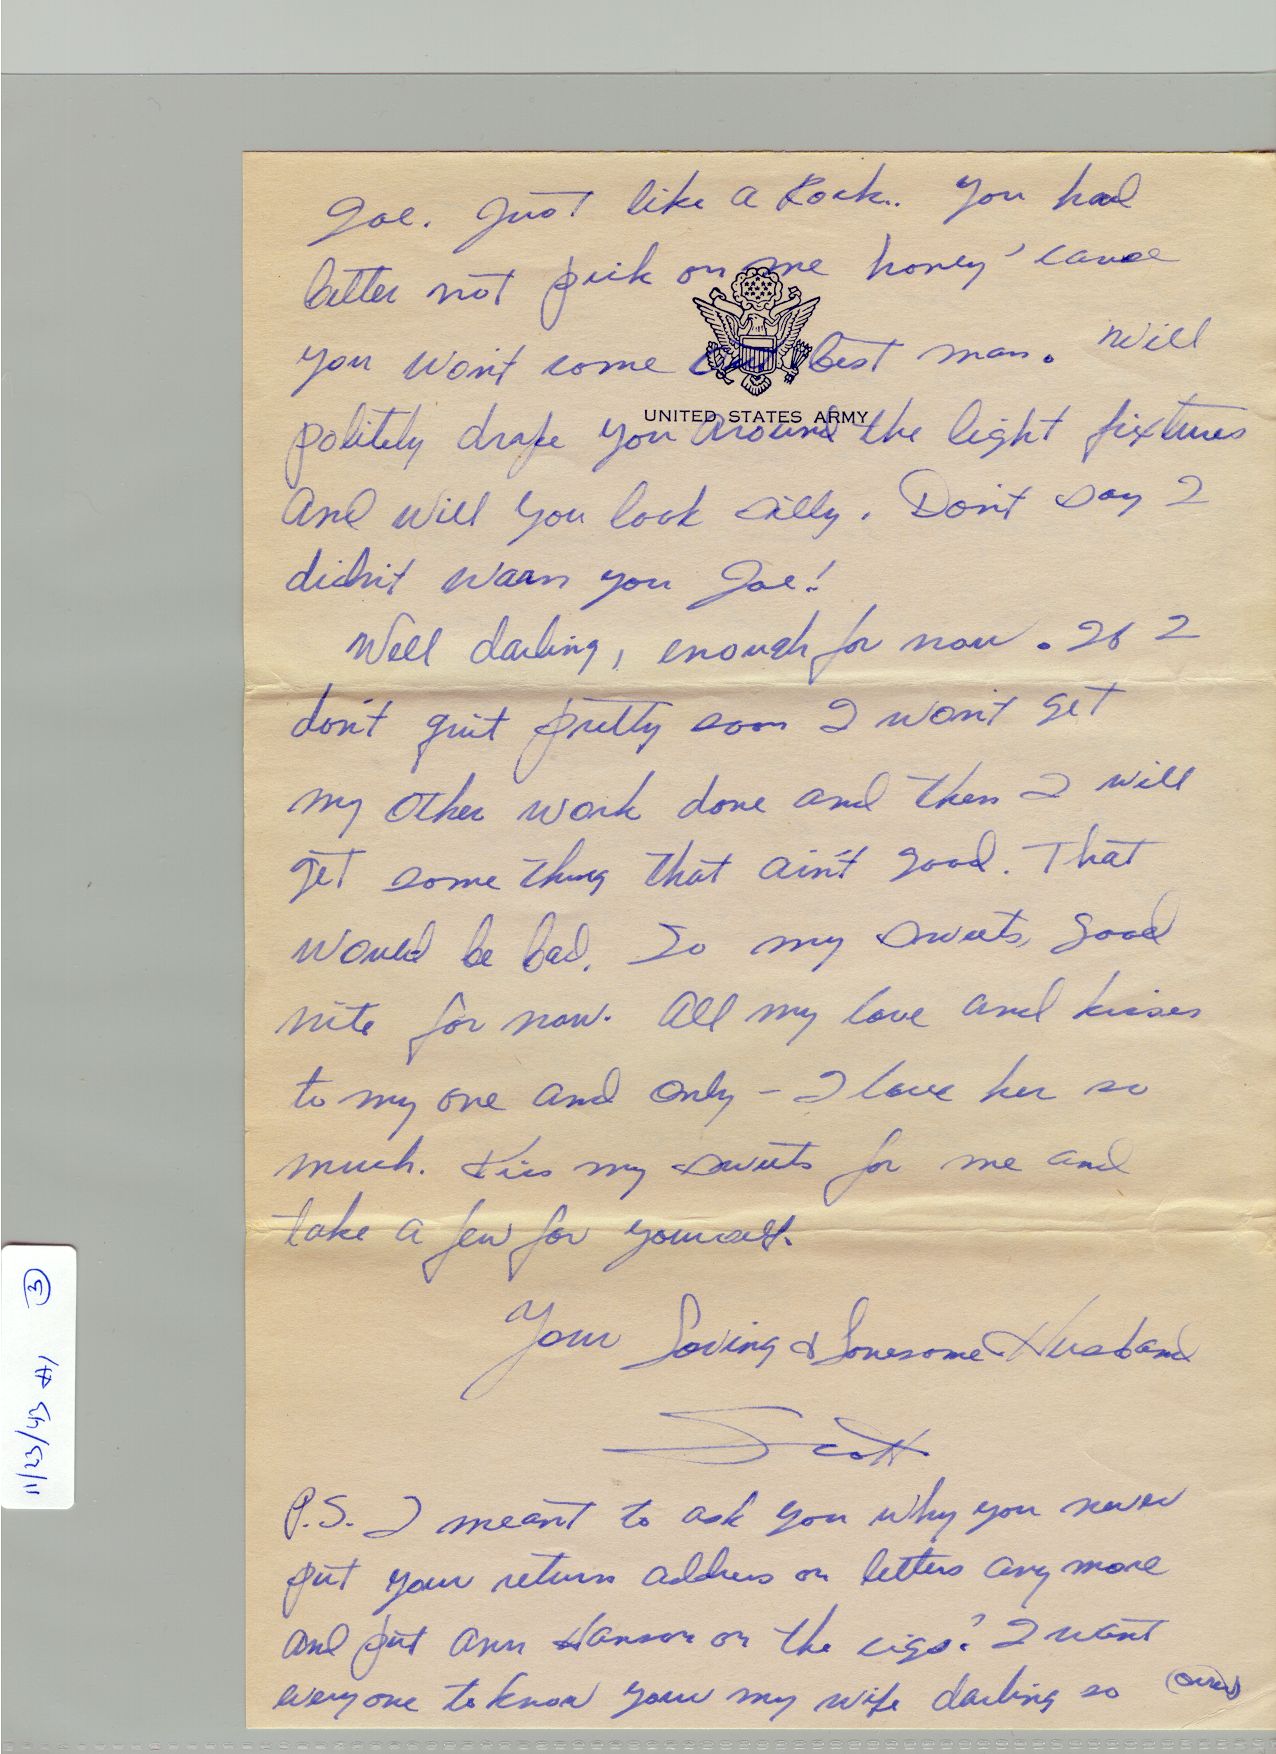 Joe. Just like a Rock.. You had
better not pick on me honey 'cause
you won't come out best man. Will
UNITED STATES ARMY
politely drape you around the light fixtures
and will you look silly. Don't say I
didn't warn you Joe!
Well darling, enough for now. If I
don't quit pretty soon I won't get
my other work done and then I will
get some thing that ain't good. That
would be bad. So my sweets, good
nite for now. All my love and kisses
to my one and only – I love her so
much. Kiss my sweets for me and
take a few for yourself.
Your Loving & Lonesome Husband
Scott
P.S. I meant to ask you why you never
put your return address on letters any more
and put Ann Hanson on the cigs? I want
everyone to know your my wife darling so (over)
11/23/43 #1 3